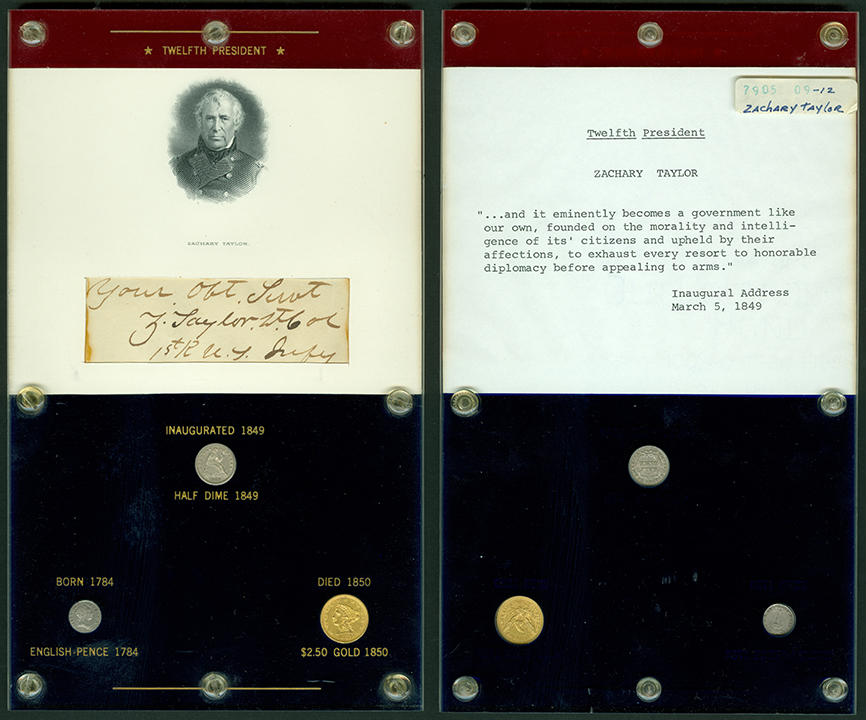 ★ TWELFTH PRESIDENT ★
ZACHARY TAYLOR.
Your Obt. Servt
Z. Taylor Lt. Col
1st R U.S. Infy
INAUGURATED 1849
HALF DIME 1849
BORN 1784
ENGLISH-PENCE 1784
DIED 1850
$2.50 GOLD 1850
7905 09-12
ZAChARY TAYLOR
Twelfth President
ZACHARY TAYLOR
"...and it eminently becomes a government like
our own, founded on the morality and intelli-
gence of its' citizens and upheld by their
affections, to exhaust every resort to honorable
diplomacy before appealing to arms."
Inaugural Address
March 5, 1849